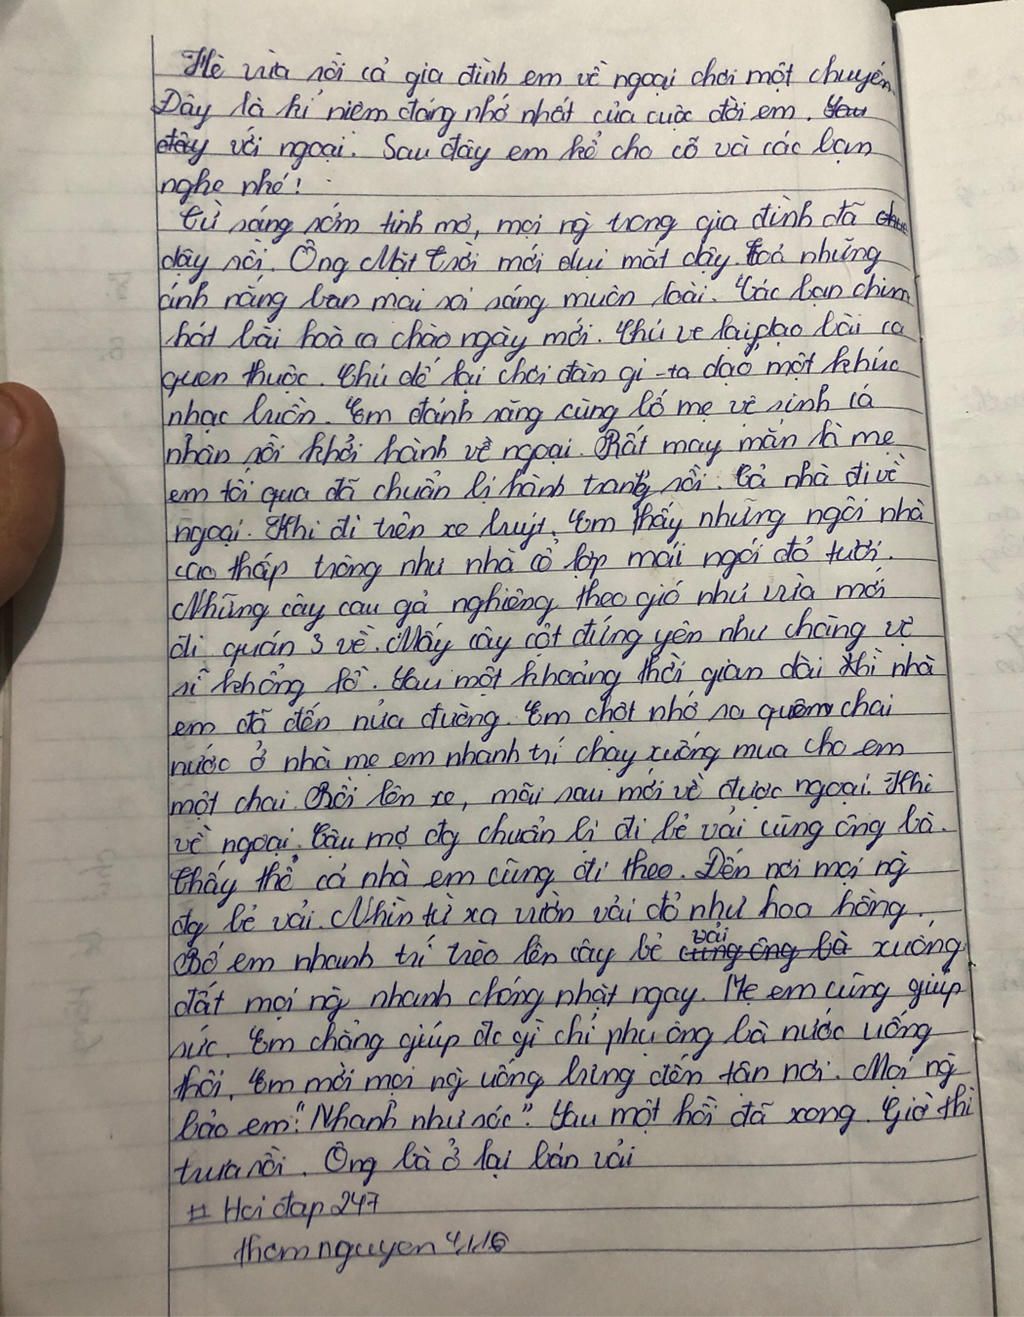 Hè vừa rồi cả gia đình em về ngoại chơi một chuyến.
Đây là kỉ niệm đáng nhớ nhất của cuộc đời em. Sau
đây với ngoại. Sau đây em kể cho cô và các bạn
nghe nhé!
Từ sáng sớm tinh mơ, mọi ng trong gia đình đã
dậy rồi. Ông Mặt Trời mới dụi mắt dậy. Toả những
ánh nắng ban mai soi sáng muôn loài. Các bạn chim
hát bài hoà ca chào ngày mới. Chú ve lại dạo bài ca
quen thuộc. Chú dế lại chơi đàn gi-ta dạo một khúc
nhạc buồn. Em đánh răng cùng bố mẹ vệ sinh cá
nhân rồi khởi hành về ngoại. Rất may mắn là mẹ
em tối qua đã chuẩn bị hành trang rồi. Cả nhà đi về
ngoại. Khi đi trên xe buýt, Em thấy những ngôi nhà
cao thấp trông như nhà cổ lợp mái ngói đỏ tươi.
Những cây cau gả nghiêng theo gió như vừa mới
đi quán 3 về. Mấy cây cột đứng yên như chàng vệ
sĩ khổng lồ. Sau một khoảng thời gian dài thì nhà
em đã đến nửa đường. Em chợt nhớ ra quên chai
nước ở nhà mẹ em nhanh trí chạy xuống mua cho em
một chai. Rồi lên xe, mãi sau mới về được ngoại. Khi
về ngoại. Cậu mợ đg chuẩn bị đi bẻ vải cùng ông bà.
Thấy thế cả nhà em cũng đi theo. Đến nơi mọi ng
đg bẻ vải. Nhìn từ xa vườn vải đỏ như hoa hồng.
Bố em nhanh trí trèo lên cây bẻ vải cùng ông bà xuống
đất mọi ng nhanh chóng nhặt ngay. Mẹ em cũng giúp
sức. Em chẳng giúp đc gì chỉ phụ ông bà nước uống
thôi. Em mời mọi ng uống bưng đến tận nơi. Mọi ng
bảo em: "Nhanh như sóc". Sau một hồi đã xong. Giờ thì
trưa rồi. Ông bà ở lại bán vải
# Hoi đap 247